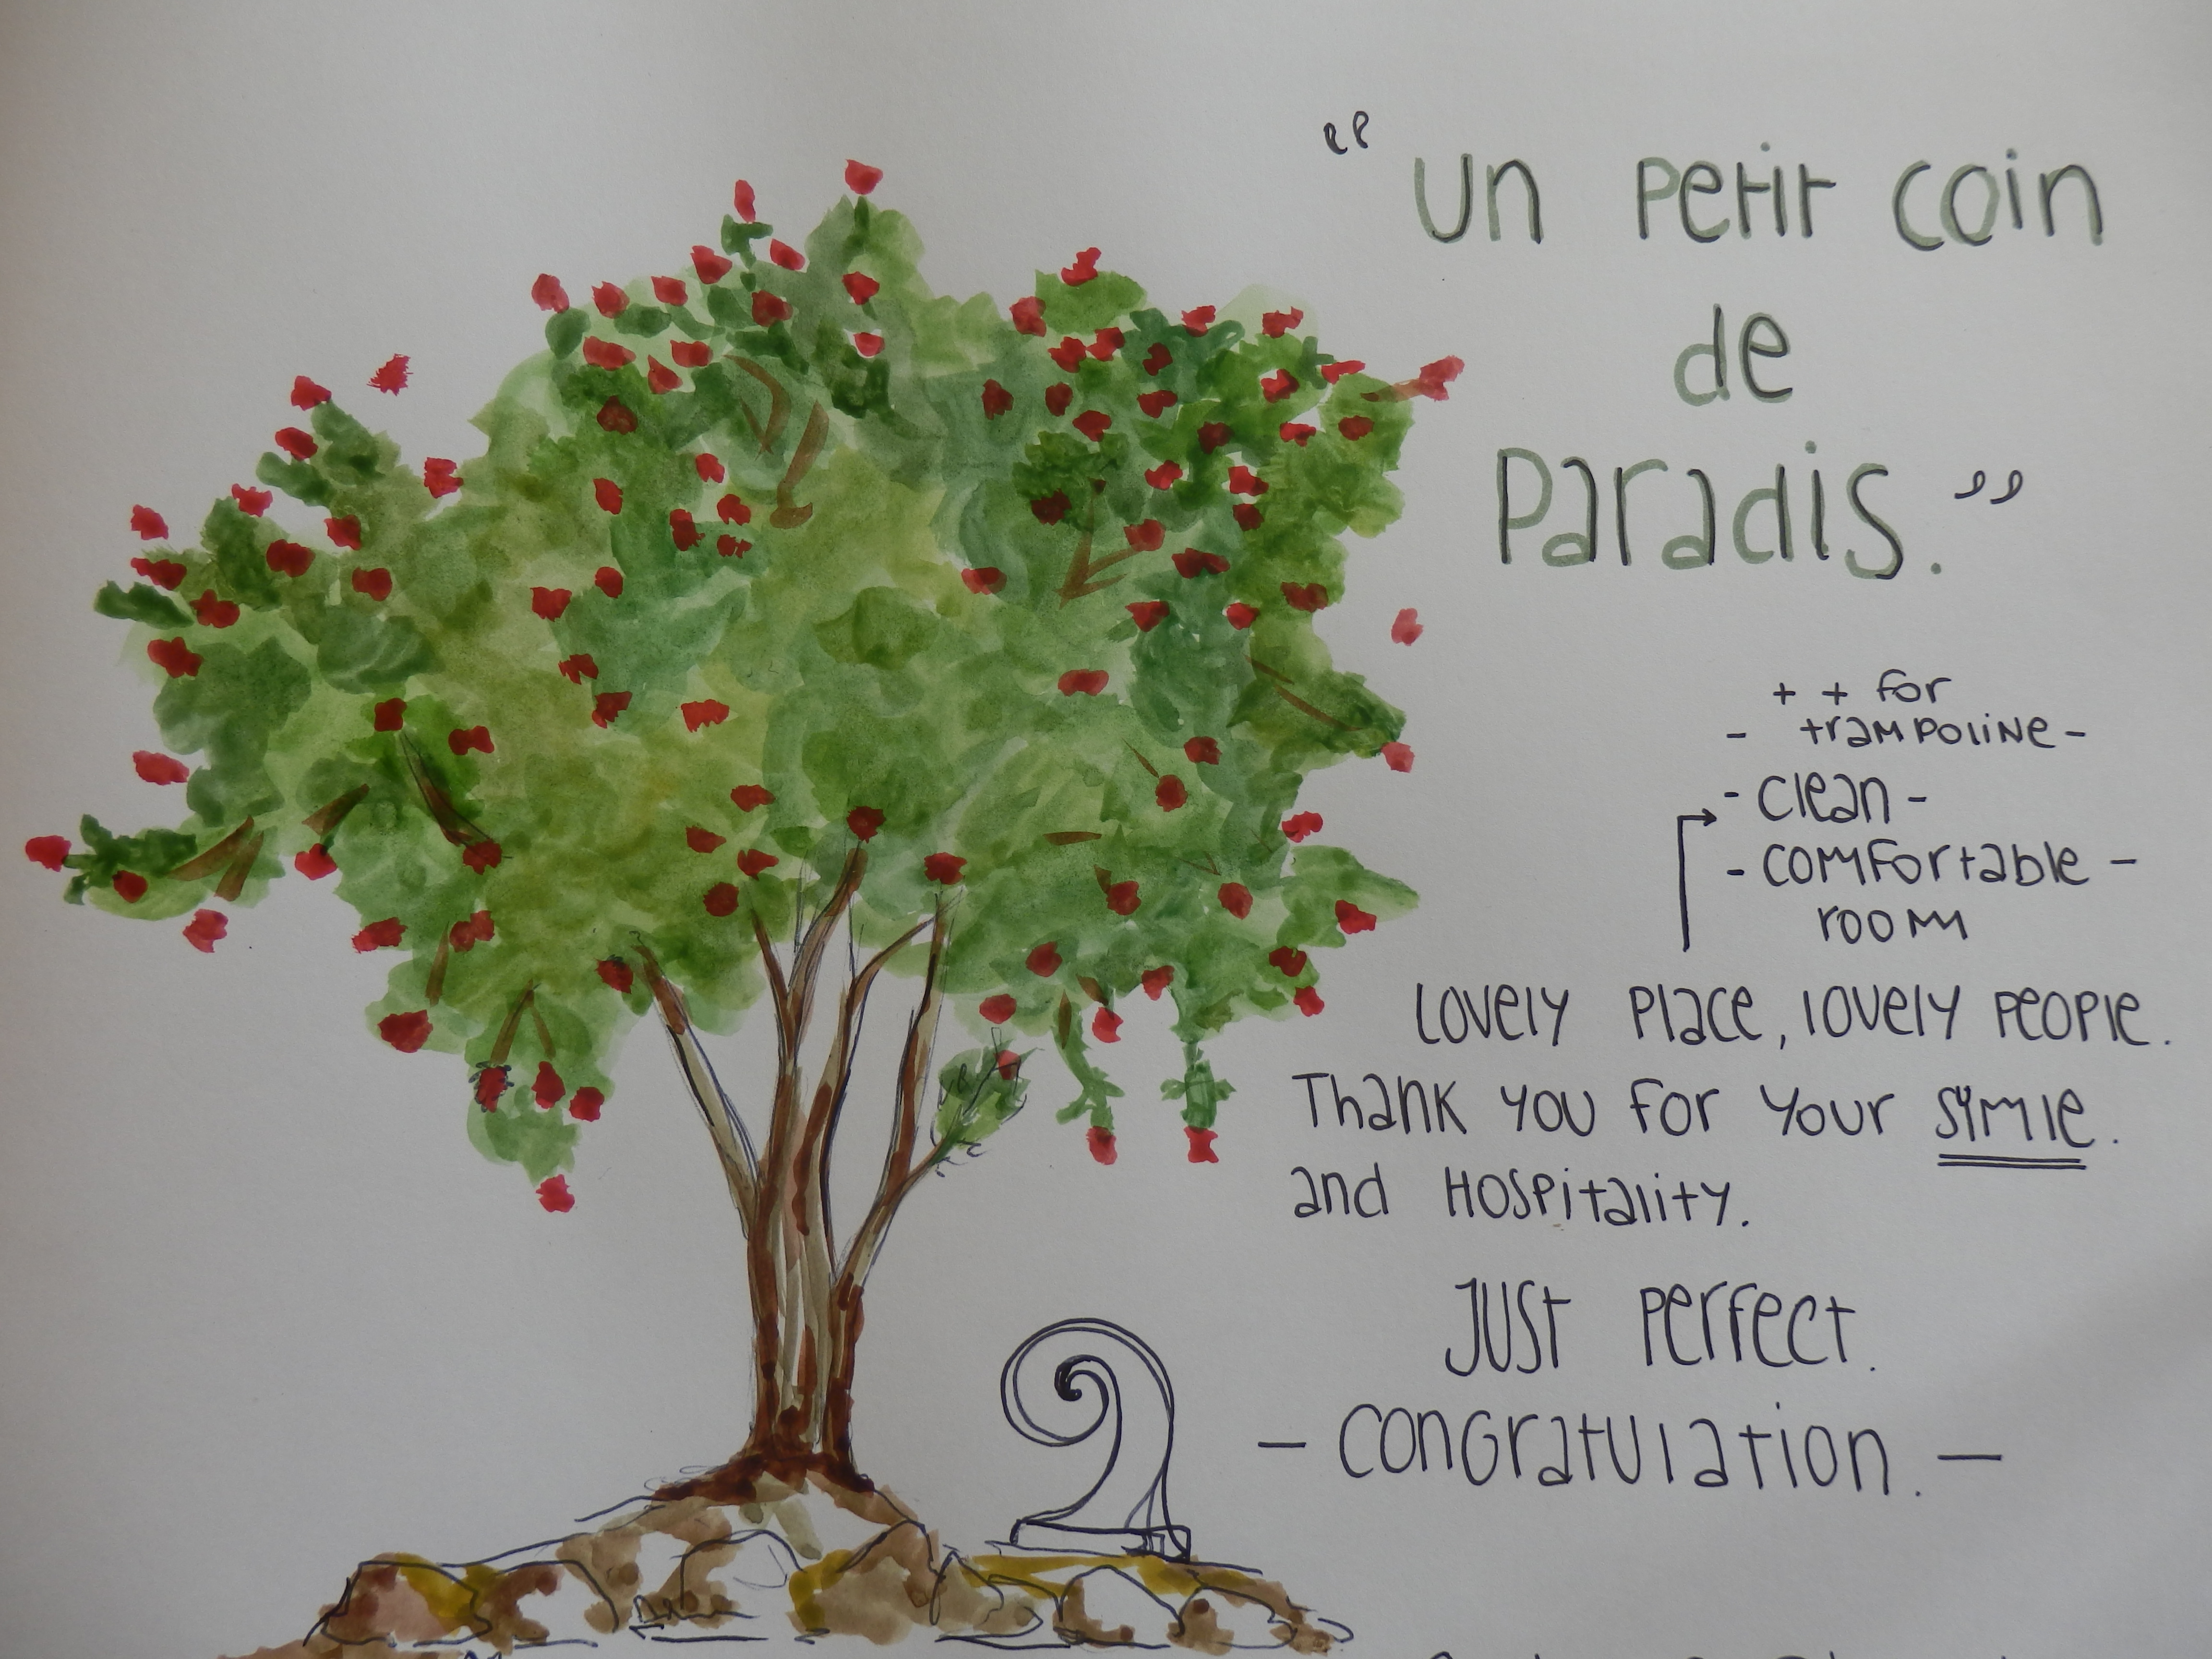 "un petit coin
de
Paradis."
+ + for
- trampoline -
- clean -
- comfortable -
room
lovely place, lovely people.
Thank you for your symle.
and Hospitality.
Just perfect.
- congratulation. -